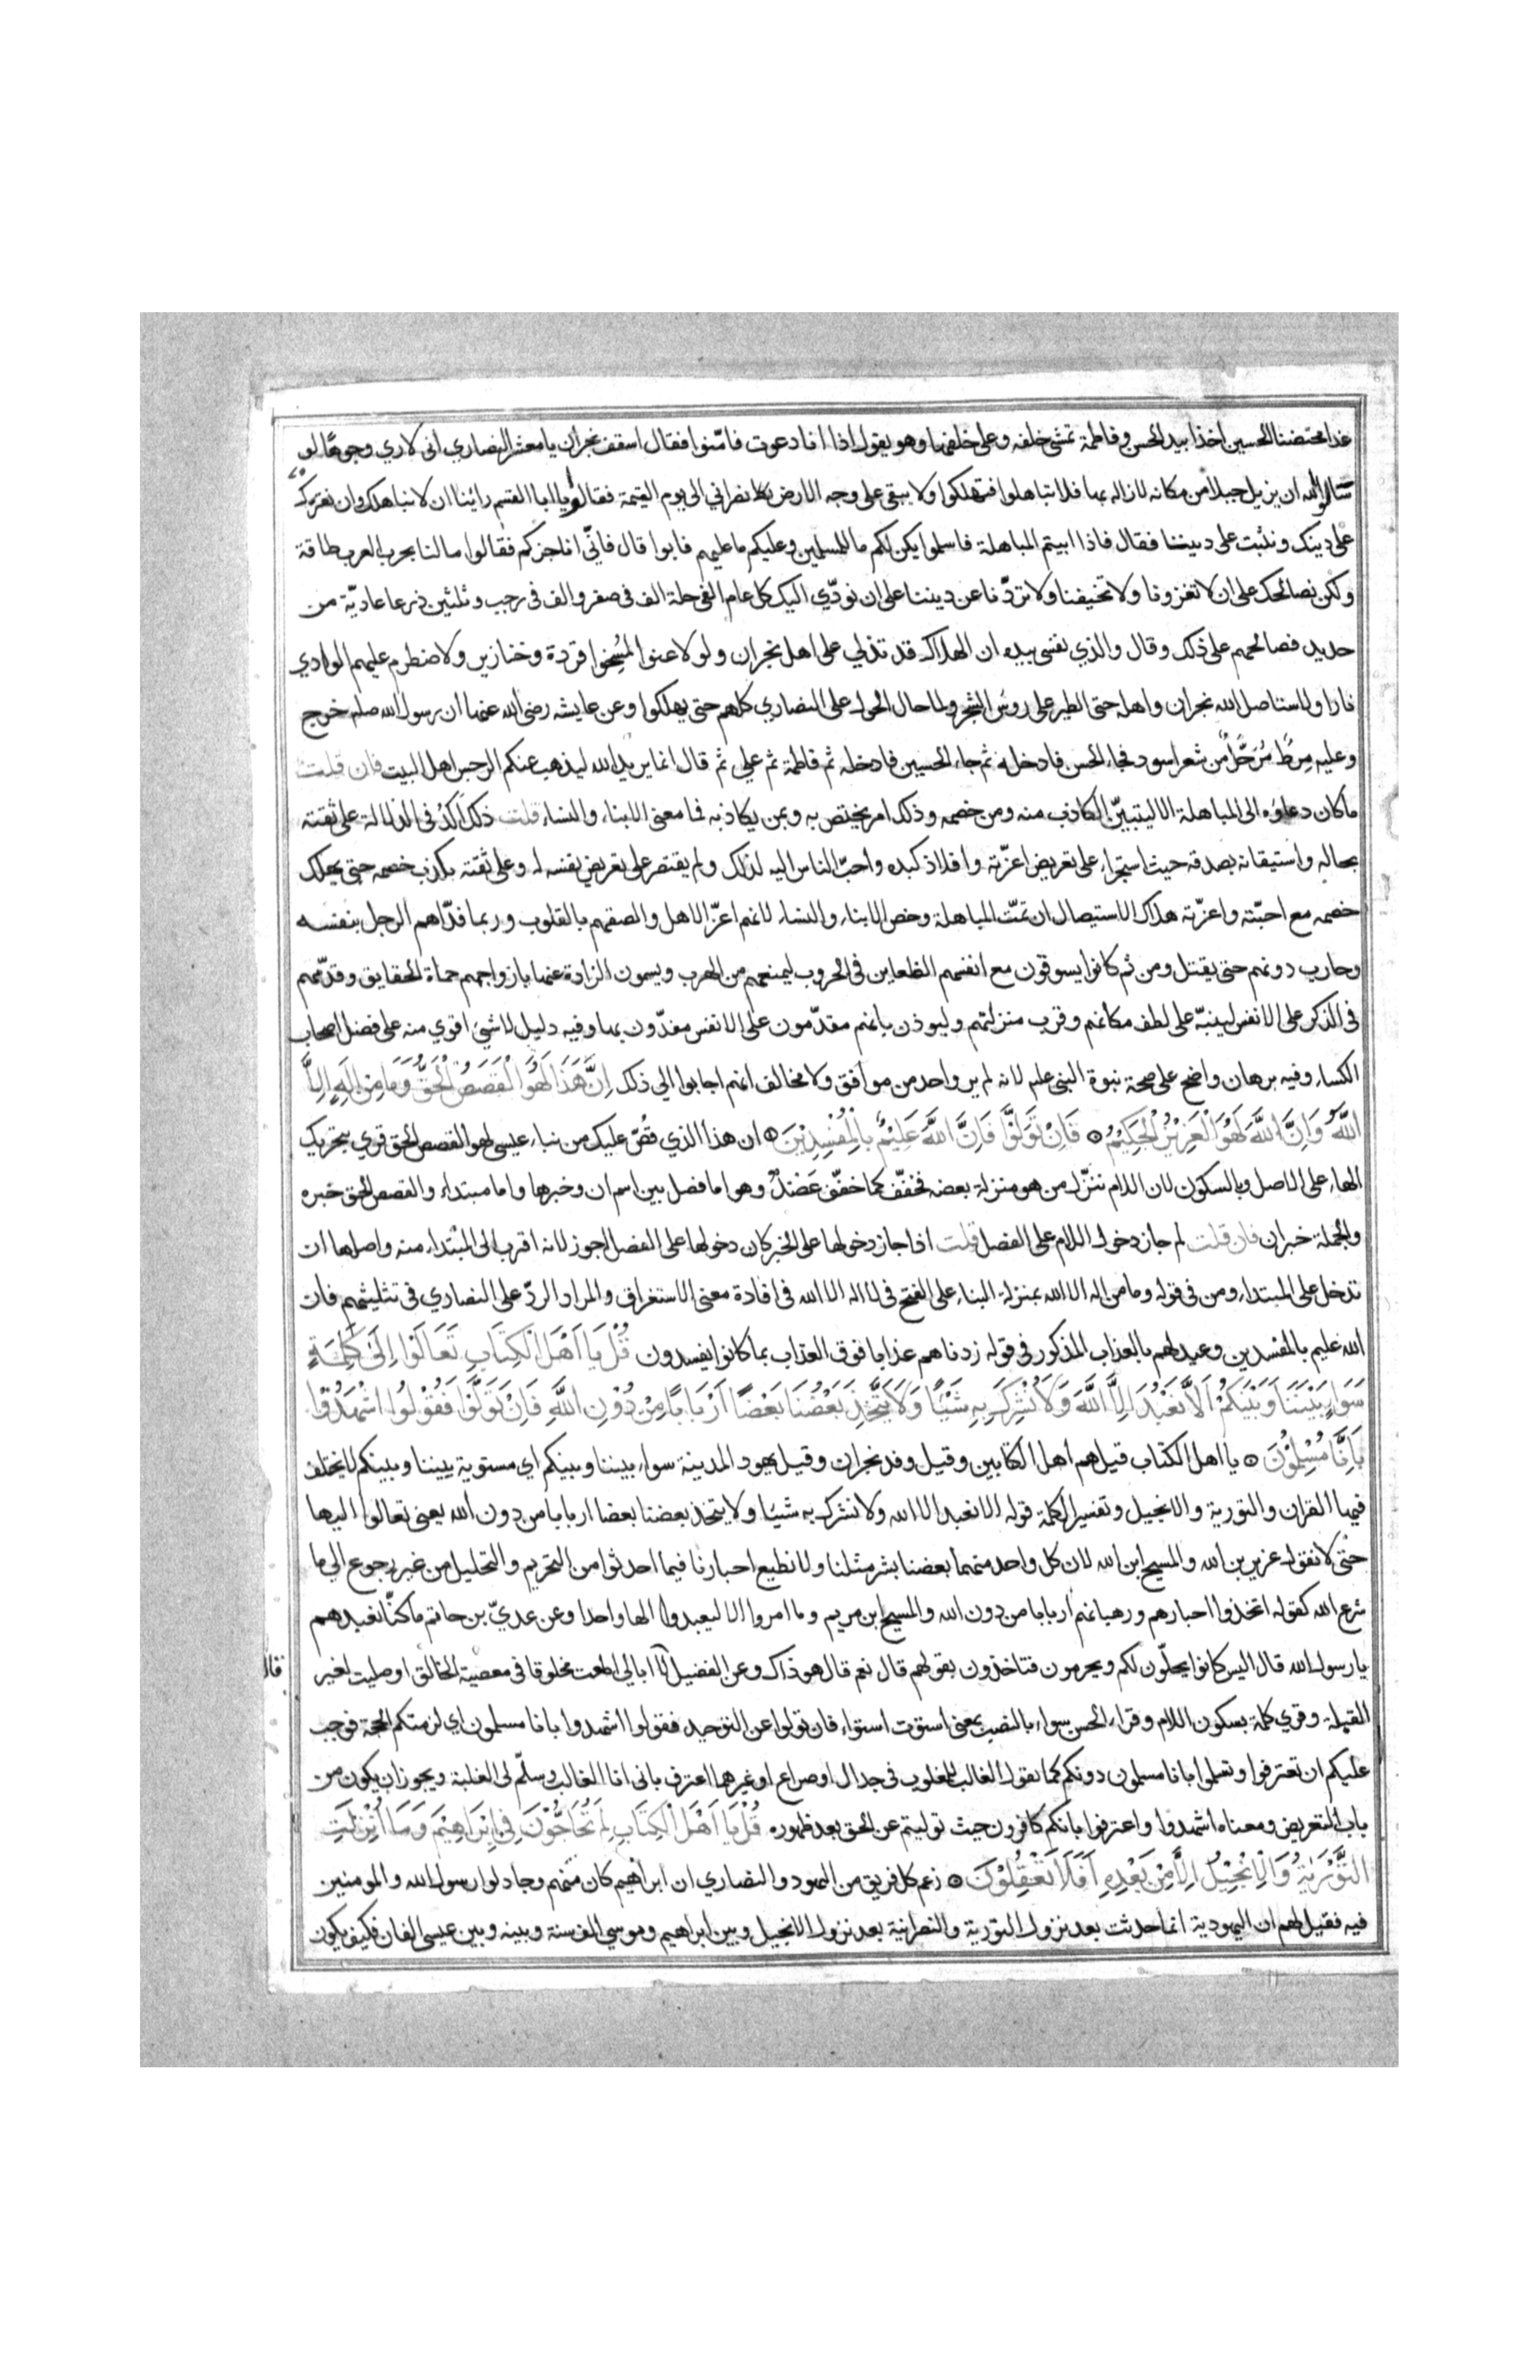 غدا محتضنا الحسين اخذا بيد الحسن وفاطمة تمشى خلفه وعلى خلفها وهو يقول اذا انا دعوت فامّنوا فقال اسقف نجران يا معشر النصاري انى لاري وجوها لو
سالوا الله ان يزيل جبلا من مكانه لازاله بها فلا تباهلوا فتهلكوا ولا يبقى على وجه الارض نصراني الى يوم القيمة فقالوا يا ابا القسم راينا ان لا نباهلك وان نقرك
على دينك ونثبت على ديننا فقال فاذا ابيتم المباهلة فاسلموا يكن لكم ما للمسلمين وعليكم ما عليهم فابوا قال فانّي اناجزكم فقالوا ما لنا بحرب العرب طاقة
ولكن نصالحك على ان لا تغزونا ولا تخيفنا ولا تردّنا عن ديننا على ان نودّي اليك كل عام الفى حلة الف فى صفر والف فى رجب وثلثين درعا عاديّة من
حديد فصالحهم على ذلك وقال والذي نفسى بيده ان الهلاك قد تدلي على اهل نجران ولو لاعنوا لمُسِخوا قردة وخنازير ولاضطرم عليهم الوادي
نارا ولاستاصل الله نجران واهله حتى الطير على روس الشجر ولما حال الحول على النصاري كلهم حتى يهلكوا وعن عايشه رضى الله عنها ان رسول الله صلم خرج
وعليه مِرطٌ مُرَحَّلٌ من شعر اسود فجاء الحسن فادخله ثم جاء الحسين فادخله ثم فاطمة ثم علي ثم قال انما يريد الله ليذهب عنكم الرجس اهل البيت فان قلت
ما كان دعاؤه الى المباهلة الا ليتبيّن الكاذب منه ومن خصمه وذلك امر يختص به وبمن يكاذبه فما معنى الابناء والنساء قلت ذلك اَكدُ فى الدلالة على ثقته
بحاله واستيقانه بصدقه حيث استجراء على تعريض اعزّته وافلاذ كبده واحبّ الناس اليه لذلك ولم يقتصر على تعريض نفسه له وعلى ثقته بكذب خصمه حتى يهلك
خصمه مع احبّته واعزّته هلاك الاستيصال ان تمّت المباهلة وخص الابناء والنساء لانهم اعزّ الاهل والصقهم بالقلوب وربما فداهم الرجل بنفسه
وحارب دونهم حتى يقتل ومن ثم كانوا يسوقون مع انفسهم الظعاين فى الحروب ليمنعهم من الهرب ويسمون الزادة عنها بازواجهم حماة الحقايق وقدّمهم
فى الذكر على الانفس لينبّه على لطف مكانهم وقرب منزلتهم وليوذن بانهم مقدّمون على الانفس مفدّون بها وفيه دليل لا شئ اقوي منه على فضل اصحاب
الكساء وفيه برهان واضح على صحة نبوة النبى علم لانه لم ير واحد من موافق ولا مخالف انهم اجابوا الي ذلك اِنَّ هَذَا لَهُوَ الْقَصَصُ الْحَقُّ وَمَا مِنْ اِلَهٍ اِلَّا
اللَّهُ وَاِنَّ اللَّهَ لَهُوَ الْعَزِيْزُ الْحَكِيْمُ ۝ فَاِنْ تَوَلَّوْا فَاِنَّ اللَّهَ عَلِيْمٌ بِالْمُفْسِدِيْنَ ۝ ان هذا الذي قصّ عليك من نباء عيسى لهو القصص الحق قري بتحريك
الهاء على الاصل وبالسكون لان اللام تنزّل من هو منزلة بعضه فخفّف كما خفّف عَضْدٌ وهو اما فصل بين اسم ان وخبرها واما مبتداء والقصص الحق خبره
والجملة خبر ان فان قلت لم جاز دخول اللام على الفصل قلت اذا جاز دخولها على الخبر كان دخولها على الفصل اجوز لانه اقرب الى المبتداء منه واصلها ان
تدخل على المبتداء ومن فى قوله وما من اله الا الله بمنزلة البناء على الفتح فى لا اله الا الله فى افادة معنى الاستغراق والمراد الردّ على النصاري فى تثليثهم فان
الله عليم بالمفسدين وعيد لهم بالعذاب المذكور فى قوله زدناهم عذابا فوق العذاب بما كانوا يفسدون قُلْ يَا اَهْلَ الْكِتَابِ تَعَالَوْا اِلَى كَلِمَةٍ
سَوَاءٍ بَيْنَنَا وَبَيْنَكُمْ اَلَّا نَعْبُدَ اِلَّا اللَّهَ وَلَا نُشْرِكَ بِهِ شَيْئًا وَلَا يَتَّخِذَ بَعْضُنَا بَعْضًا اَرْبَابًا مِنْ دُوْنِ اللَّهِ فَاِنْ تَوَلَّوْا فَقُوْلُوا اشْهَدُوْا
بِاَنَّا مُسْلِمُوْنَ ۝ يا اهل الكتاب قيل هم اهل الكتابين وقيل وفد نجران وقيل يهود المدينة سواء بيننا وبينكم اي مستوية بيننا وبينكم لا يختلف
فيها القران والتورية والانجيل وتفسير الكلمة قوله الا نعبد الا الله ولا نشرك به شيئا ولا يتخذ بعضنا بعضا اربابا من دون الله يعنى تعالوا اليها
حتى لا نقول عزير بن الله والمسيح ابن الله لان كل واحد منهما بعضنا بشر مثلنا ولا نطيع احبارنا فيما احدثوا من التحريم والتحليل من غير رجوع الي ما
شرع الله كقوله اتخذوا احبارهم ورهبانهم اربابا من دون الله والمسيح ابن مريم وما امروا الا ليعبدوا الها واحدا وعن عديّ بن حاتم ما كنّا نعبدهم
يا رسول الله قال اليس كانوا يحلّون لكم ويحرمون فتاخذون بقولهم قال نعم قال هو ذاك وعن الفضيل لا ابالي اطعت مخلوقا فى معصية الخالق او صليت لغير
قال
القبلة وقري كلمة بسكون اللام وقراء الحسن سواء بالنصب بمعنى استوت استواء فان تولوا عن التوحيد فقولوا اشهدوا بانا مسلمون اي لزمتكم الحجة فوجب
عليكم ان تعترفوا وتسلموا بانا مسلمون دونكم كما يقول الغالب للمغلوب فى جدال او صراع او غيرهما اعترف بانى انا الغالب وسلّم لى الغلبة ويجوز ان يكون من
باب التعريض ومعناه اشهدوا واعترفوا بانكم كافرون حيث توليتم عن الحق بعد ظهوره قُلْ يَا اَهْلَ الْكِتَابِ لِمَ تُحَاجُّوْنَ فِى اِبْرَاهِيْمَ وَمَا اُنْزِلَتِ
التَّوْرَيةُ وَالْاِنْجِيْلُ اِلَّا مِنْ بَعْدِهِ اَفَلَا تَعْقِلُوْنَ ۝ زعم كل فريق من اليهود والنصاري ان ابراهيم كان منهم وجادلوا رسول الله والمومنين
فيه فقيل لهم ان اليهودية انما حدثت بعد نزول التورية والنصرانية بعد نزول الانجيل وبين ابراهيم وموسي الف سنة وبينه وبين عيسى الفان فكيف يكون